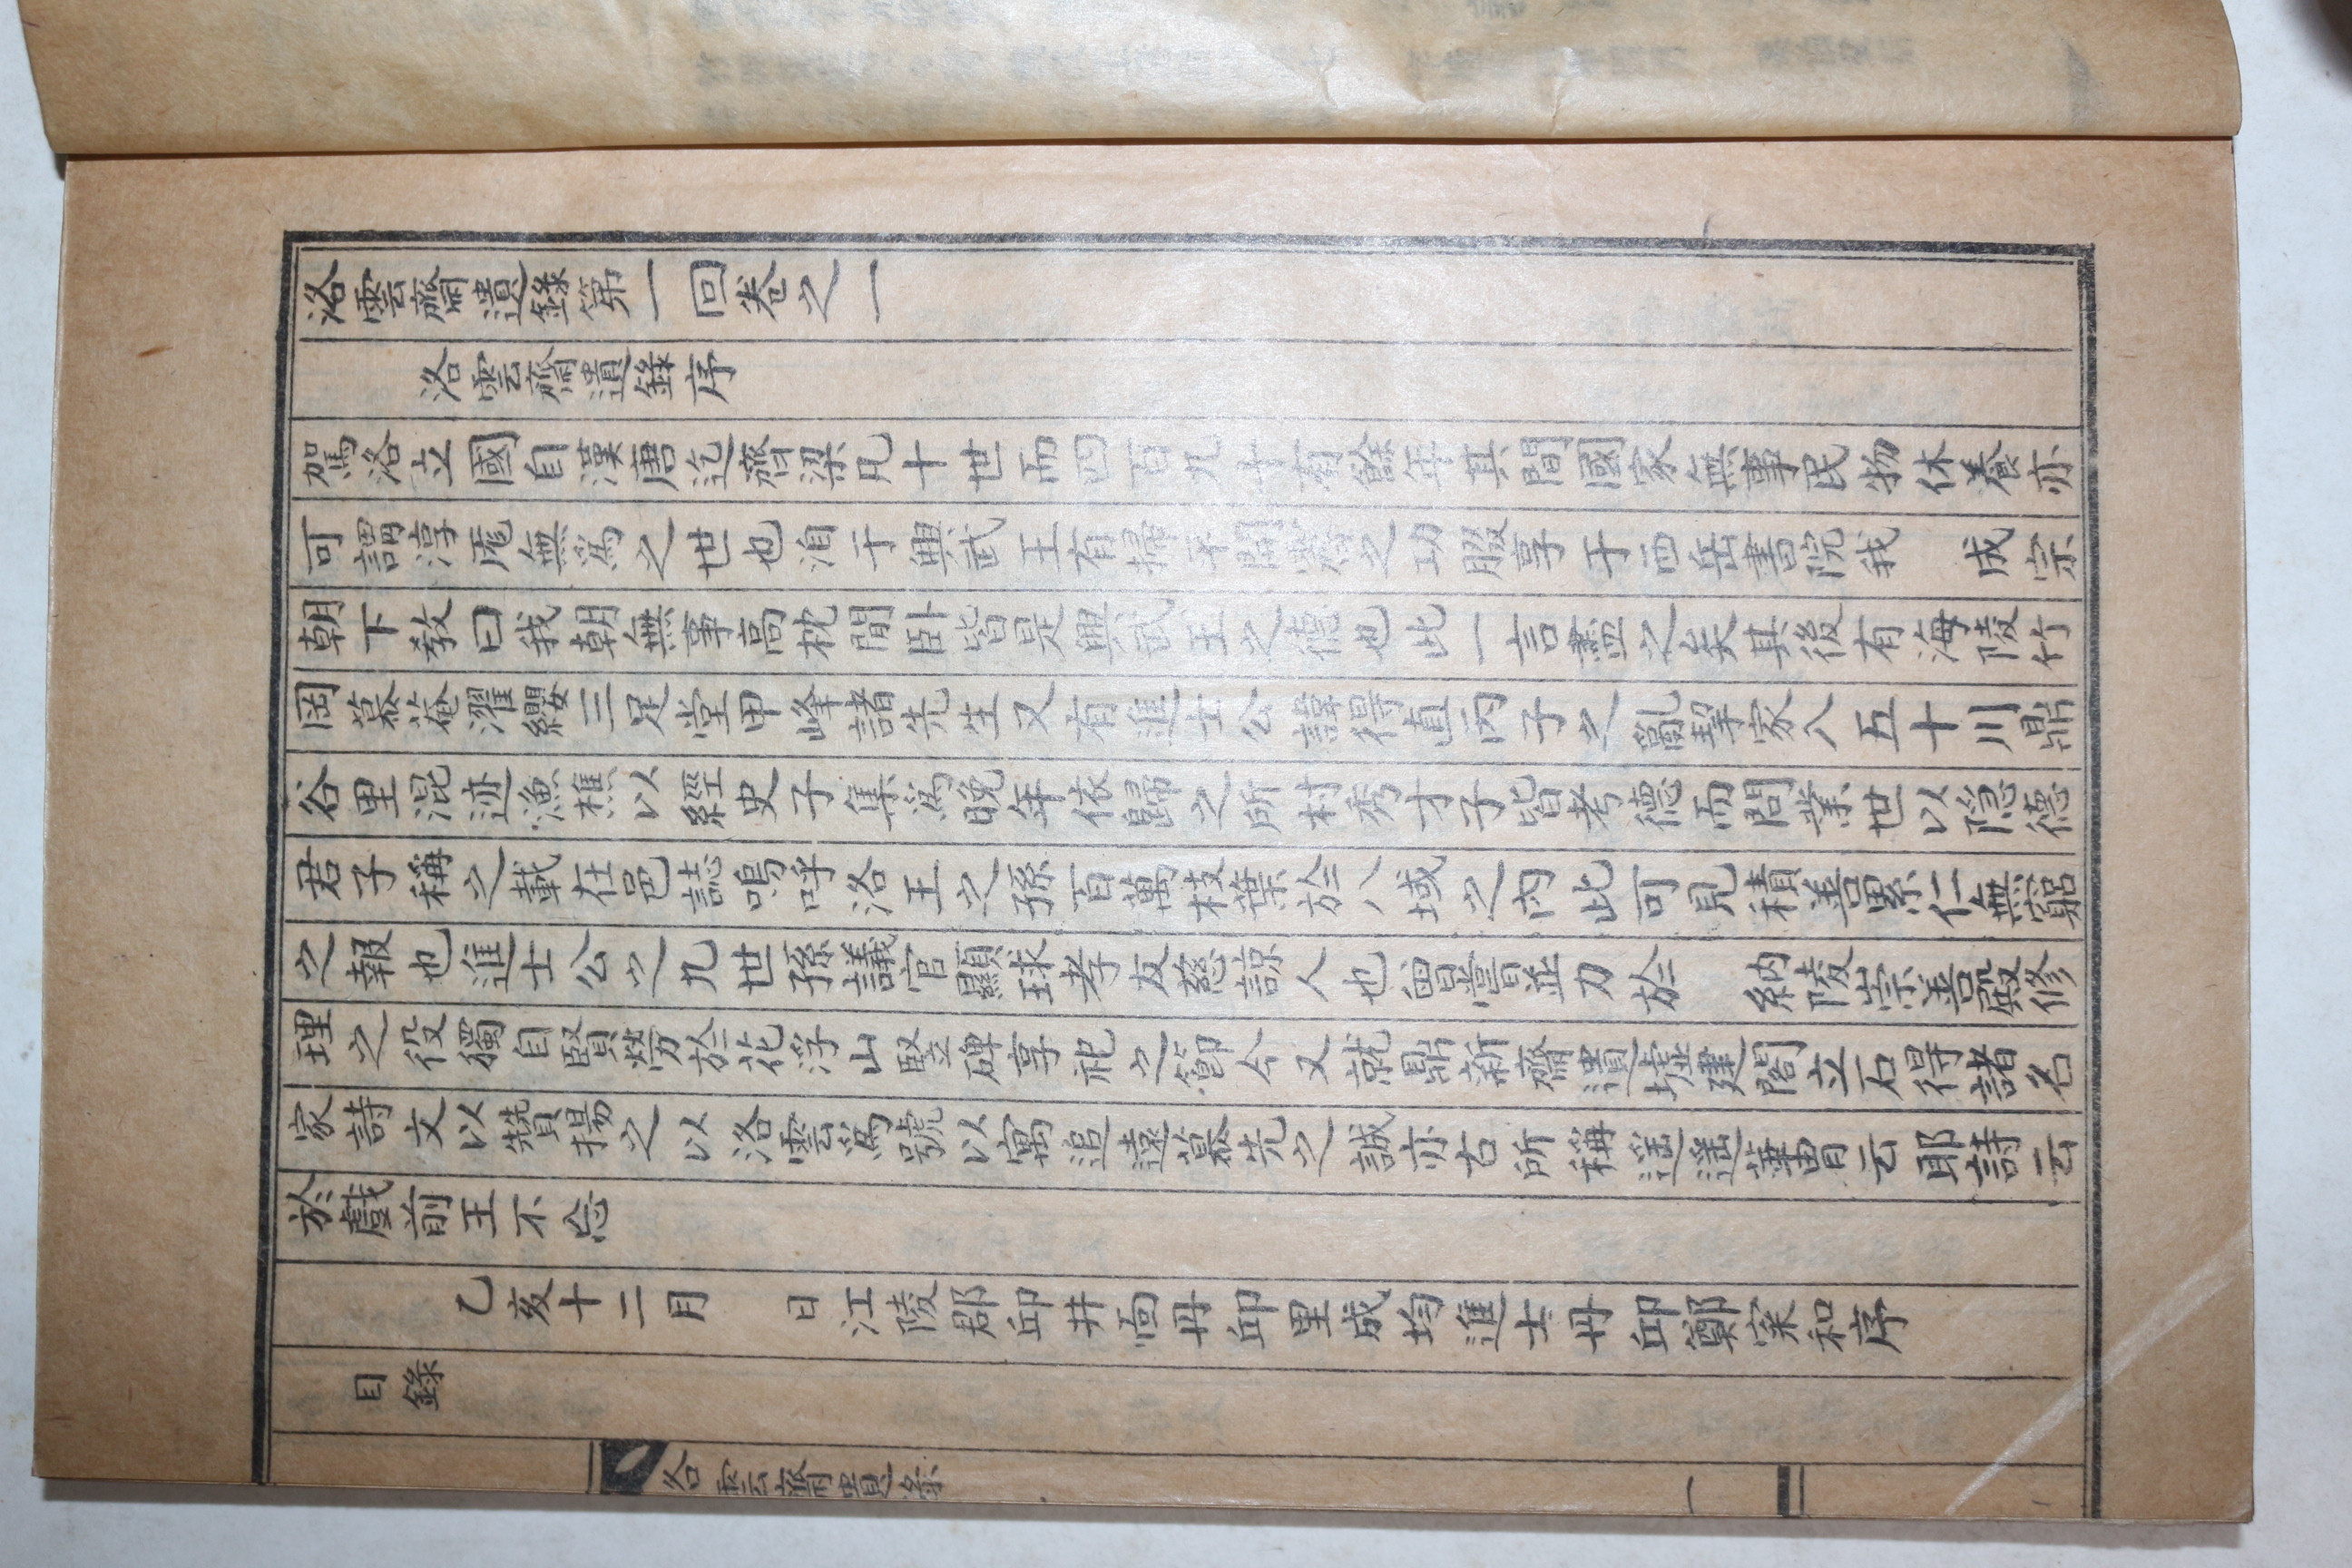 洛雲齋遺錄第一回卷之一
洛雲齋遺錄序
駕洛立國自漢唐迄齊梁凡十世而四百九十有餘年其間國家無事民物休養亦
可謂淳厖無爲之世也洎于興武王有掃之功腏享于西岳書院我 成宗
朝下敎曰我朝無事高枕閒臥皆是興武王之德也此一言盡之矣其後有海陵竹
岡慕菴濯纓三足堂甲峰諸先生又有進士公諱得直丙子之亂挈家入五十川鼎
谷里混迹漁樵以經史子集爲晩年依歸之所村秀才子皆考德而問業世以隱德
君子稱之載在邑誌嗚呼洛王之孫百萬枝葉於八域之內此可見積善累仁無窮
之報也進士公之九世孫議官顯球孝友慈諒人也曾嘗並力於 納陵崇善殿修
理之役獨自賢勞於花浮山竪碑享祀之節今又就鼎新齋遺墟建閣立石得諸名
家詩文以贊揚之以洛雲爲號以寓追遠慕先之誠亦古所稱遥遥華胄云耶詩云
於戲前王不忘
乙亥十二月 日江陵郡邱井面丹邱里成均進士丹邱鄭寀和序
目錄
洛雲齋遺錄
一